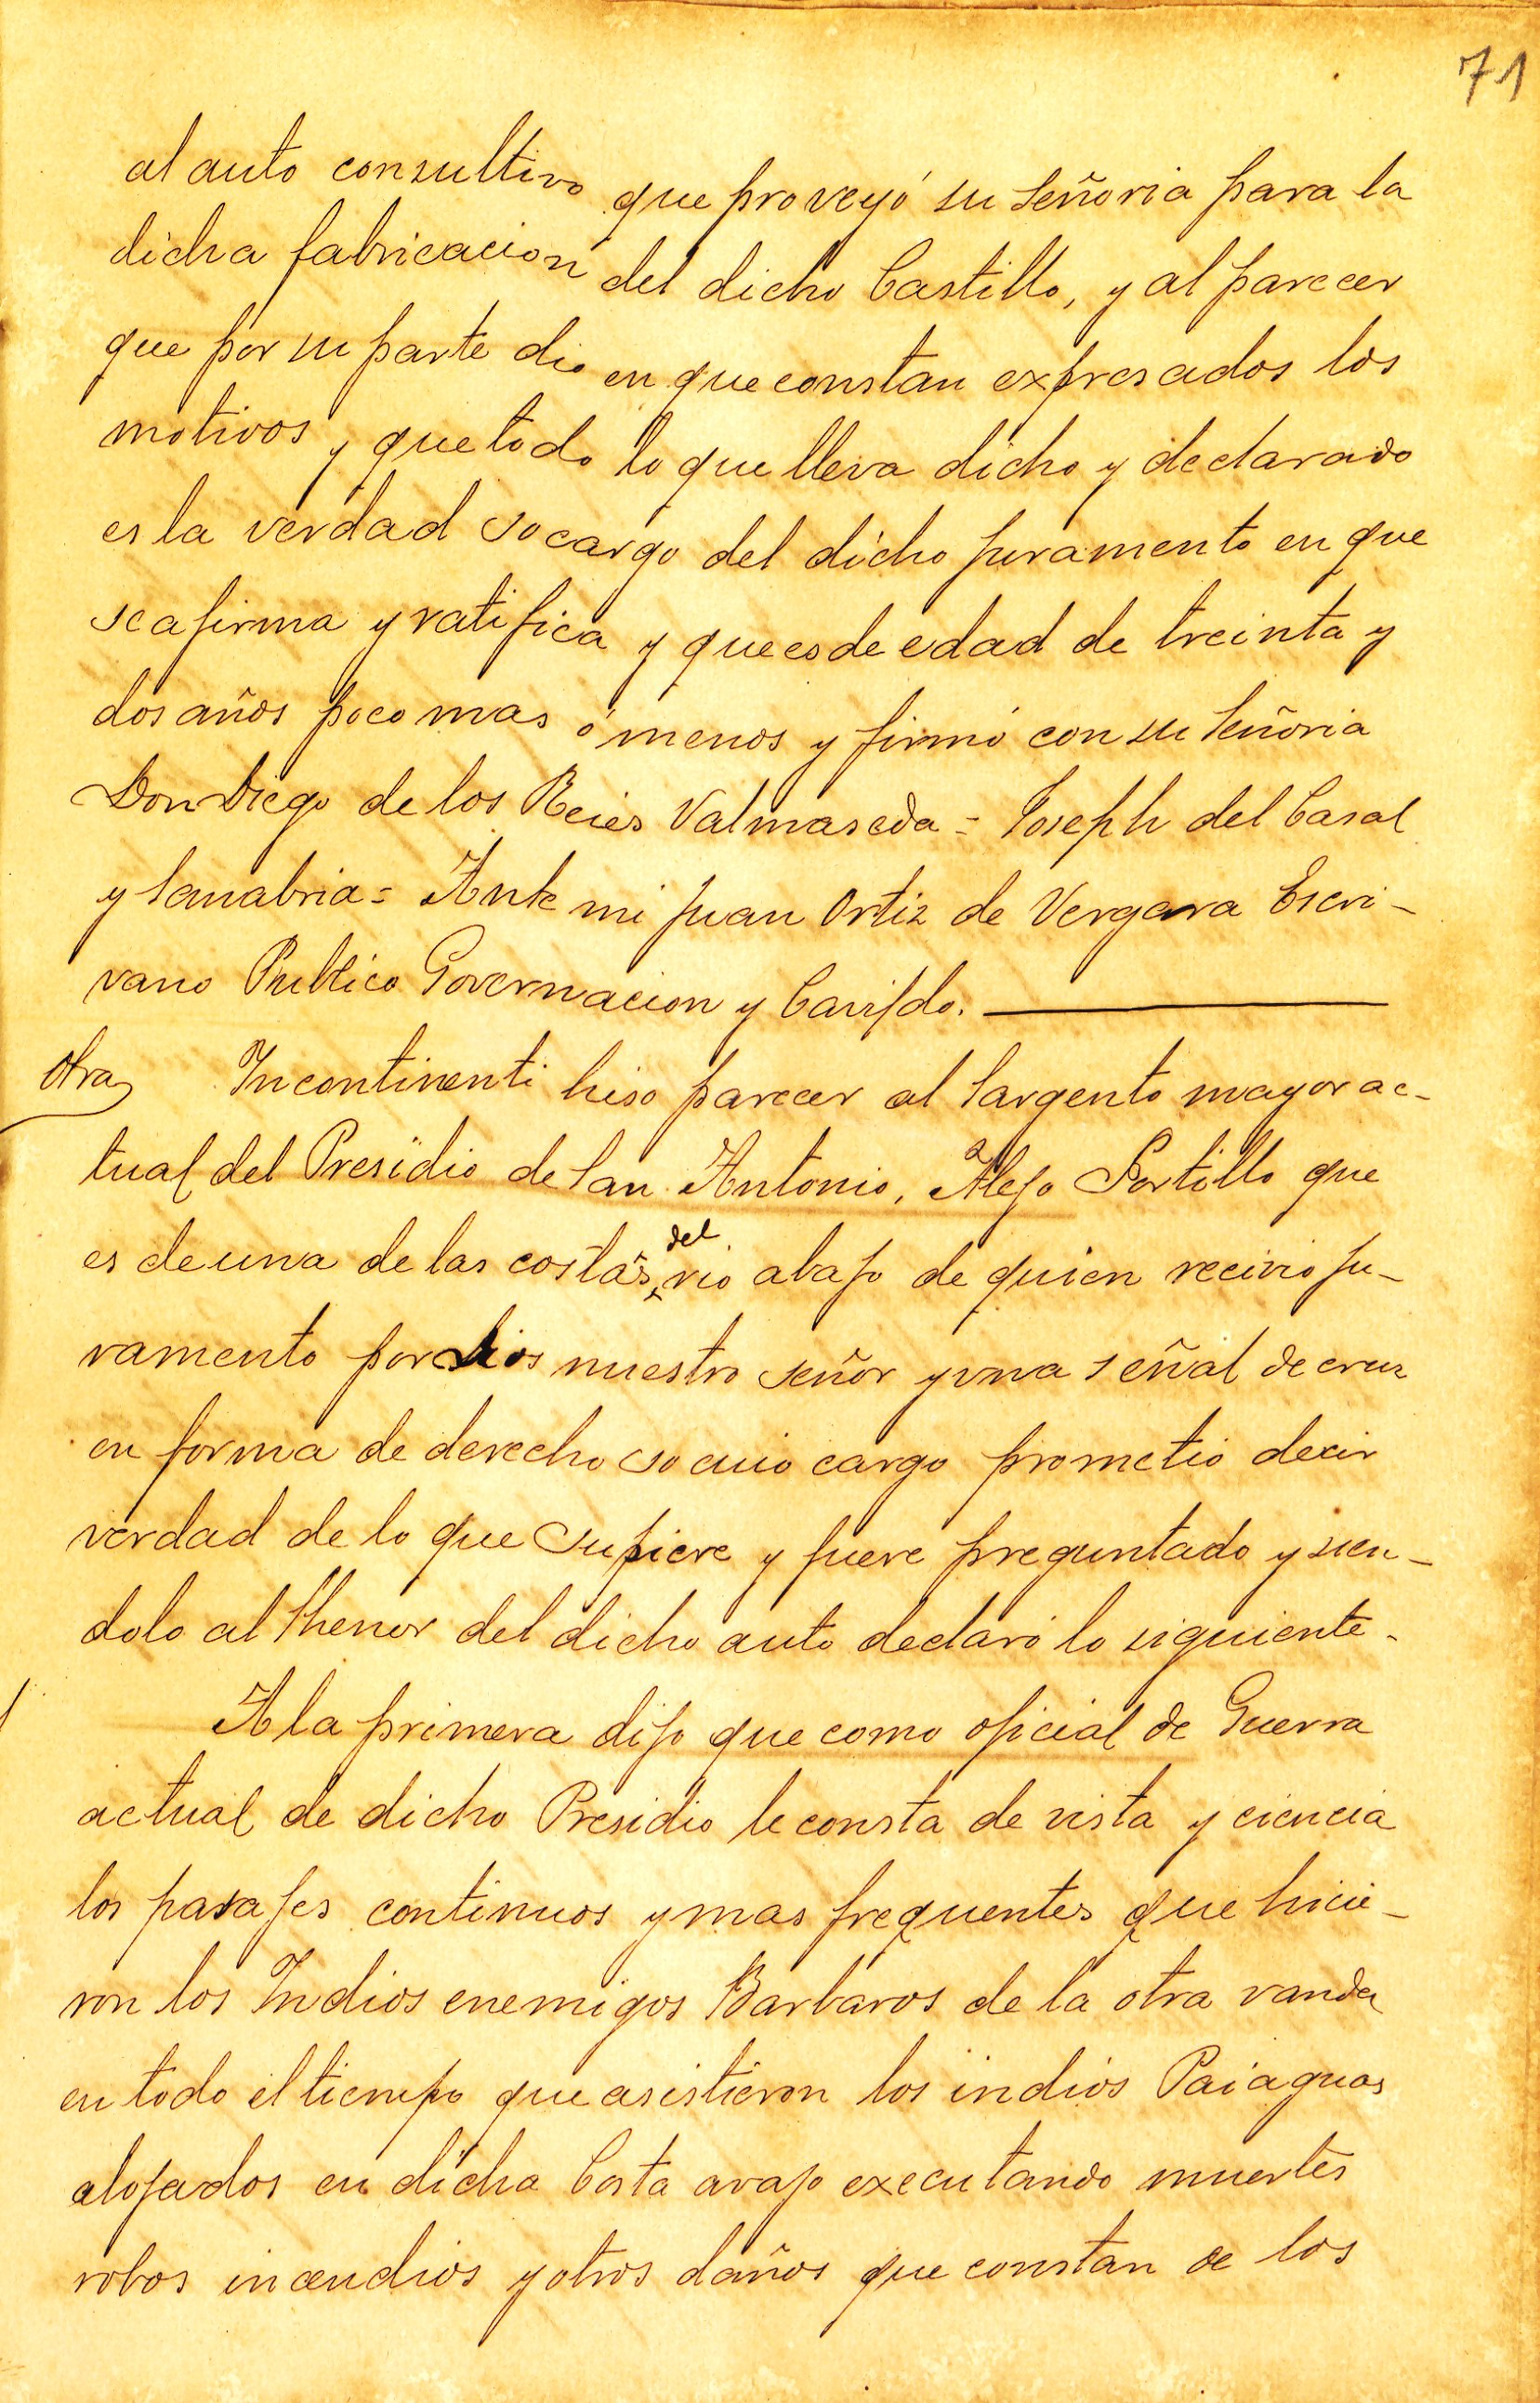 71
al auto consultivo que proveyó su señoria para la
dicha fabricacion del dicho Castillo, y al parecer
que por su parte dio en que constan expresados los
motivos y que todo lo que lleva dicho y declarado
es la verdad so cargo del dicho juramento en que
se afirma y ratifica y que es de edad de treinta y
dos años poco mas ó menos y firmó con su señoria
Don Diego de los Reies Valmaseda = Joseph del Casal
y Sanabria = Ante mi Juan Ortiz de Vergara Escri-
vano Publico Governacion y Cavildo.
Otra Incontinenti hiso parecer al Sargento mayor ac-
tual del Presidio de San Antonio, Alejo Portillo que
es de una de las costas del rio abajo de quien recivio ju-
ramento por Dios nuestro señor y una señal de cruz
en forma de derecho so cuio cargo prometio decir
verdad de lo que supiere y fuere preguntado y sien-
dolo al thenor del dicho auto declaró lo siguiente.
A la primera dijo que como oficial de Guerra
actual de dicho Presidio le consta de vista y ciencia
los pasajes continuos y mas frequentes que hicie-
ron los Indios enemigos Barbaros de la otra vanda
en todo el tiempo que asistieron los indios Paiaguas
alojados en dicha Costa avajo executando muertes
robos incendios y otros daños que constan de los